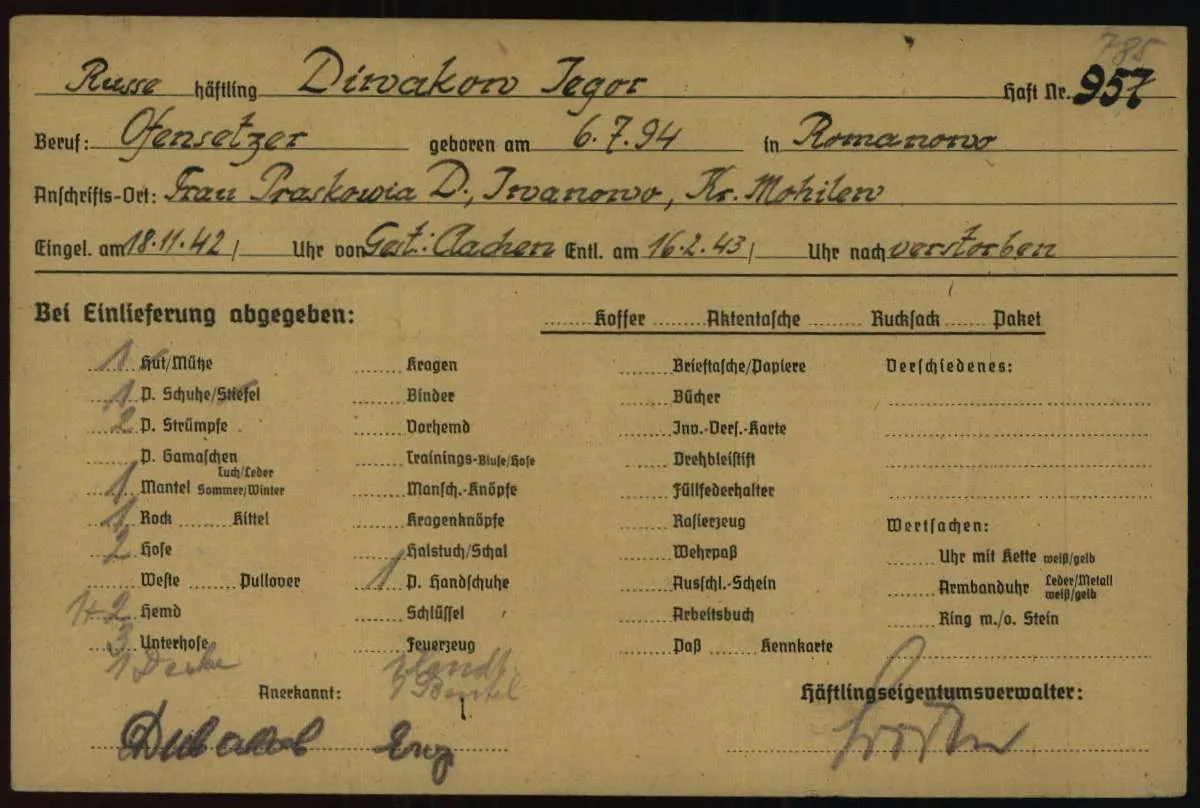 785
Russe häftling Diwakow Jegor Haft Nr. 957
Beruf: Ofensetzer geboren am 6.7.94 in Romanowo
Anschrifts-Ort: Frau Praskowia D., Iwanowo, Kr. Mohilew
Eingel. am 18.11.42 / Uhr von Gest: Aachen Entl. am 16.2.43 / Uhr nach verstorben
Bei Einlieferung abgegeben: ........ Koffer ........ Aktentasche ........ Rucksack ...... Paket
1 Hut/Mütze ...... Kragen ...... Brieftasche/Papiere Verschiedenes:
1 P. Schuhe/Stiefel ...... Binder ...... Bücher
2 P. Strümpfe ...... Vorhemd ...... Inv.-Vers.-Karte
...... P. Gamaschen ...... Trainings-Bluse/Hose ...... Drehbleistift
1 Mantel Tuch/Leder Sommer/Winter ...... Mansch.-Knöpfe ...... Füllfederhalter
1 Rock ...... Kittel ...... Kragenknöpfe ...... Rasierzeug Wertsachen:
2 Hose ...... Halstuch/Schal ...... Wehrpaß ...... Uhr mit Kette weiß/gelb
...... Weste ...... Pullover 1 P. Handschuhe ...... Ausschl.-Schein ...... Armbanduhr Leder/Metall weiß/gelb
1+2 Hemd ...... Schlüssel ...... Arbeitsbuch ...... Ring m./o. Stein
3 Unterhose ...... Feuerzeug ...... Paß ...... Kennkarte
1 Decke 1 Handt.
1 Beutel
Anerkannt: Häftlingseigentumsverwalter: